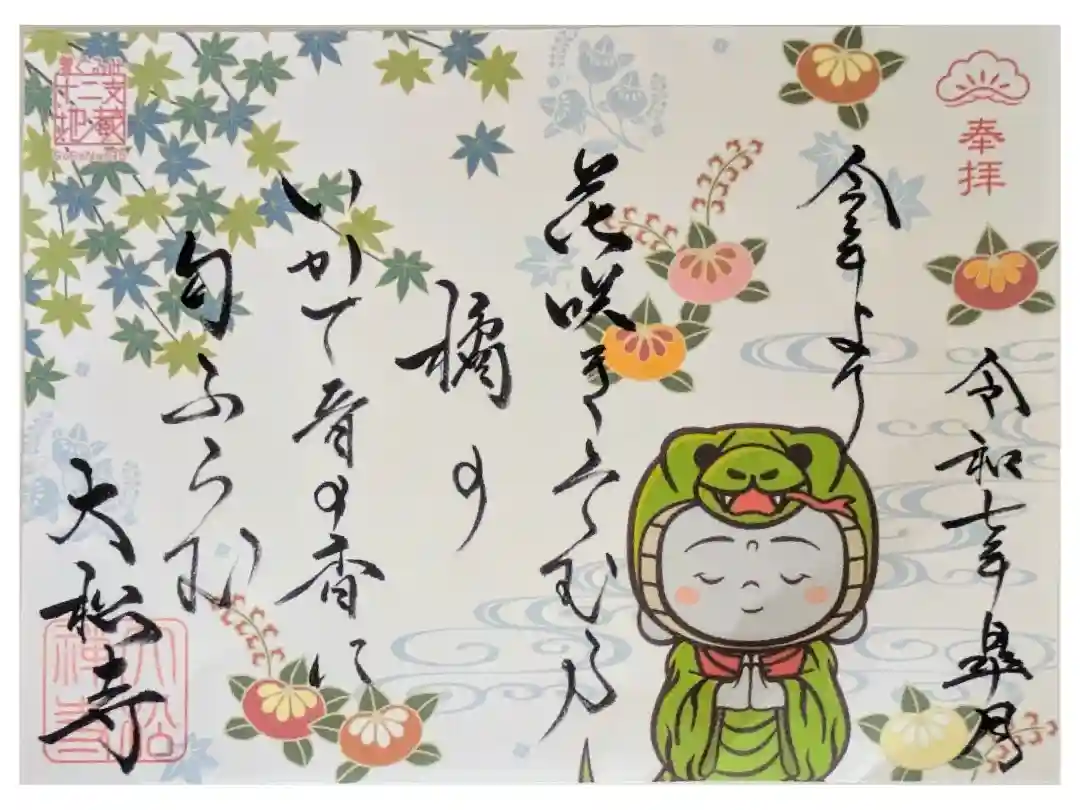 奉拝
令和七年皐月
今年より
花咲きそむる
橘の
いかて昔の香に
匂ふらむ
大松寺
十二支
地蔵
大松
禅寺